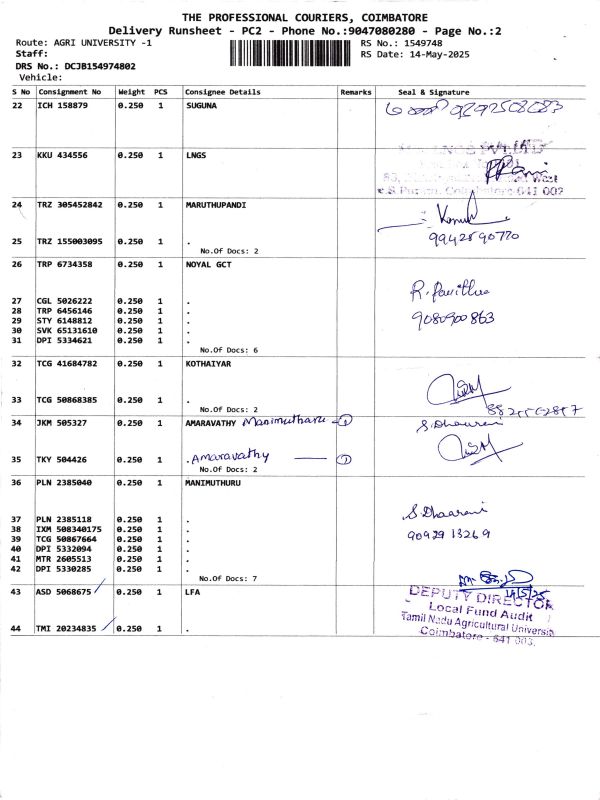 THE PROFESSIONAL COURIERS, COIMBATORE
Delivery Runsheet - PC2 - Phone No.:9047080280 - Page No.:2
Route: AGRI UNIVERSITY -1 RS No.: 1549748
Staff: RS Date: 14-May-2025
DRS No.: DCJB154974802
Vehicle:
S No Consignment No Weight PCS Consignee Details Remarks Seal & Signature
22 ICH 158879 0.250 1 SUGUNA
23 KKU 434556 0.250 1 LNGS
641 002
24 TRZ 305452842 0.250 1 MARUTHUPANDI
25 TRZ 155003095 0.250 1 . 9942590770
No.Of Docs: 2
26 TRP 6734358 0.250 1 NOYAL GCT
R. Pavithra
27 CGL 5026222 0.250 1 .
28 TRP 6456146 0.250 1 . 9080900863
29 STY 6148812 0.250 1 .
30 SVK 65131610 0.250 1 .
31 DPI 5334621 0.250 1 .
No.Of Docs: 6
32 TCG 41684782 0.250 1 KOTHAIYAR
33 TCG 50868385 0.250 1 .
No.Of Docs: 2
34 JKM 505327 0.250 1 AMARAVATHY Manimutharu - 1 S. Dhaarani
35 TKY 504426 0.250 1 . Amaravathy — 1
No.Of Docs: 2
36 PLN 2385040 0.250 1 MANIMUTHURU
S. Dhaarani
37 PLN 2385118 0.250 1 .
38 IXM 508340175 0.250 1 . 9092913269
39 TCG 50867664 0.250 1 .
40 DPI 5332094 0.250 1 .
41 MTR 2605513 0.250 1 .
42 DPI 5330285 0.250 1 .
No.Of Docs: 7
14/5/25
43 ASD 5068675 0.250 1 LFA
DEPUTY DIRECTOR
Local Fund Audit
Tamil Nadu Agricultural University
44 TMI 20234835 0.250 1 .
Coimbatore - 641 003.